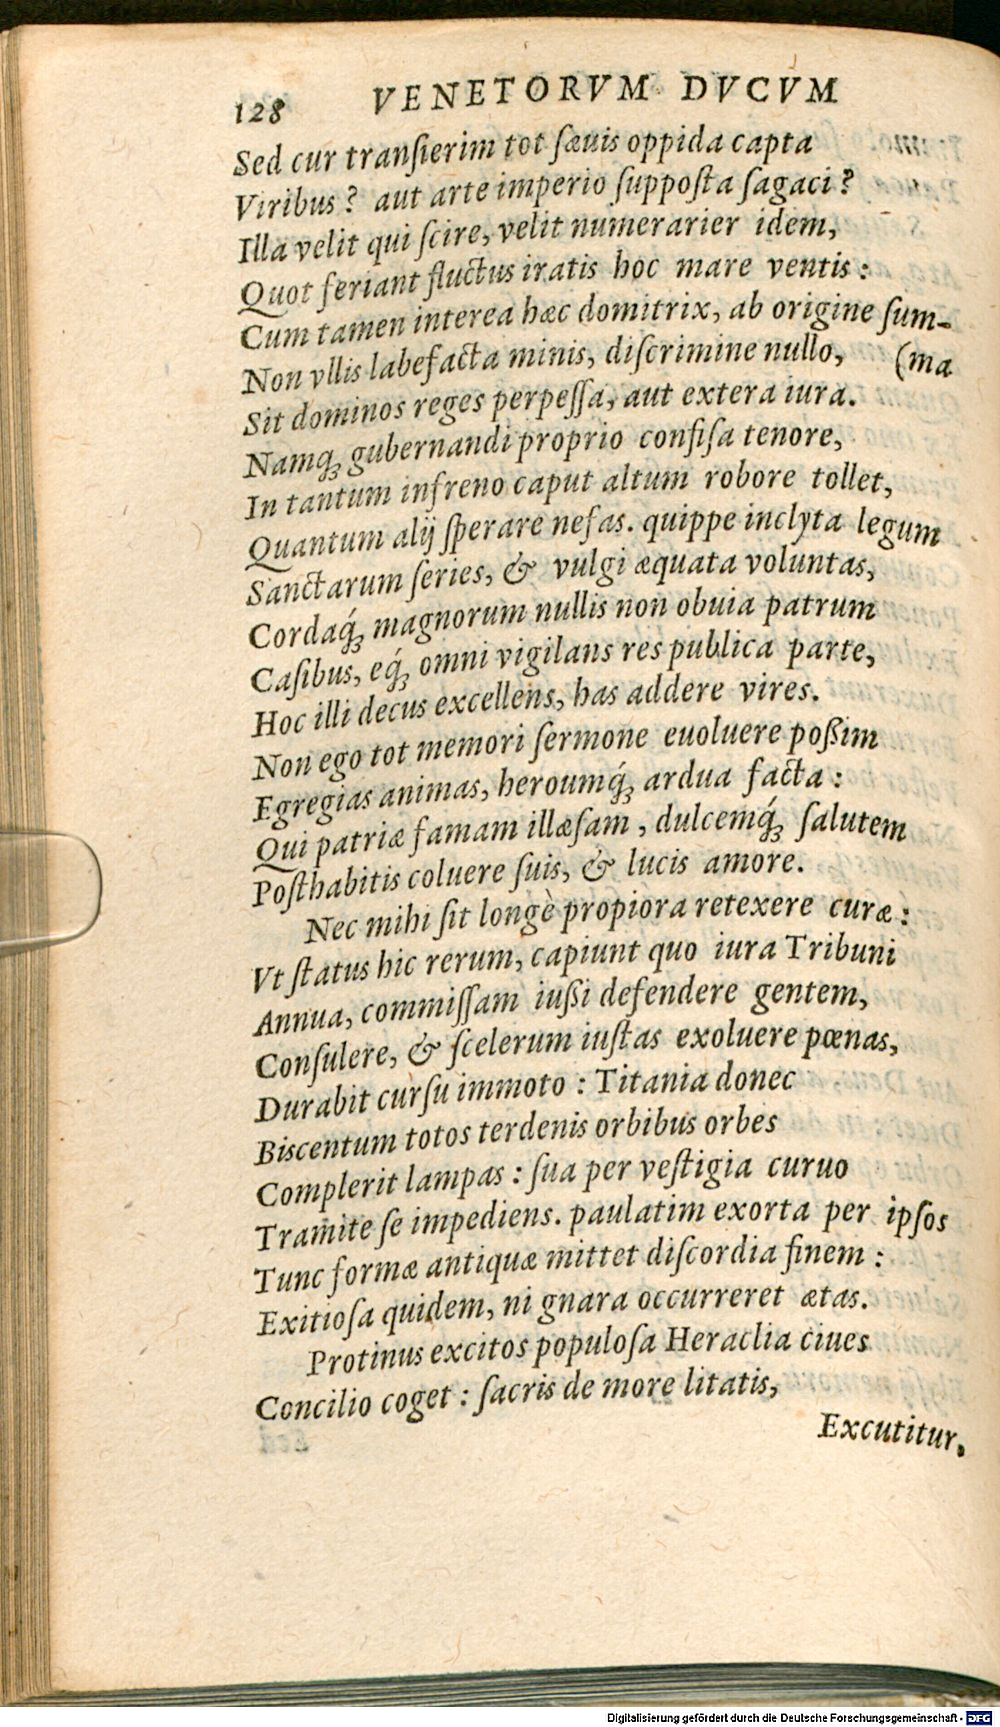 128 VENETORVM DVCVM
Sed cur tranſierim tot ſæuis oppida capta
Viribus? aut arte imperio ſuppoſta ſagaci?
Illa velit qui ſcire, velit numerarier idem,
Quot feriant fluctus iratis hoc mare ventis:
Cum tamen interea hæc domitrix, ab origine ſum-
Non vllis labefacta minis, diſcrimine nullo, (ma
Sit dominos reges perpeſſa, aut extera iura.
Namq; gubernandi proprio confiſa tenore,
In tantum infreno caput altum robore tollet,
Quantum alij ſperare nefas. quippe inclyta legum
Sanctarum ſeries, & vulgi æquata voluntas,
Cordaq́; magnorum nullis non obuia patrum
Caſibus, eq́; omni vigilans res publica parte,
Hoc illi decus excellens, has addere vires.
Non ego tot memori ſermone euoluere poßim
Egregias animas, heroumq́; ardua facta:
Qui patriæ famam illæſam, dulcemq́; ſalutem
Poſthabitis coluere ſuis, & lucis amore.
Nec mihi ſit longè propiora retexere curæ:
Vt ſtatus hic rerum, capiunt quo iura Tribuni
Annua, commiſſam iußi defendere gentem,
Conſulere, & ſcelerum iuſtas exoluere pœnas,
Durabit curſu immoto: Titania donec
Biscentum totos terdenis orbibus orbes
Complerit lampas: ſua per veſtigia curuo
Tramite ſe impediens. paulatim exorta per ipſos
Tunc formæ antiquæ mittet diſcordia finem:
Exitioſa quidem, ni gnara occurreret ætas.
Protinus excitos populoſa Heraclia ciues
Concilio coget: ſacris de more litatis,
Excutitur,
Digitalisierung gefördert durch die Deutsche Forschungsgemeinschaft - DFG